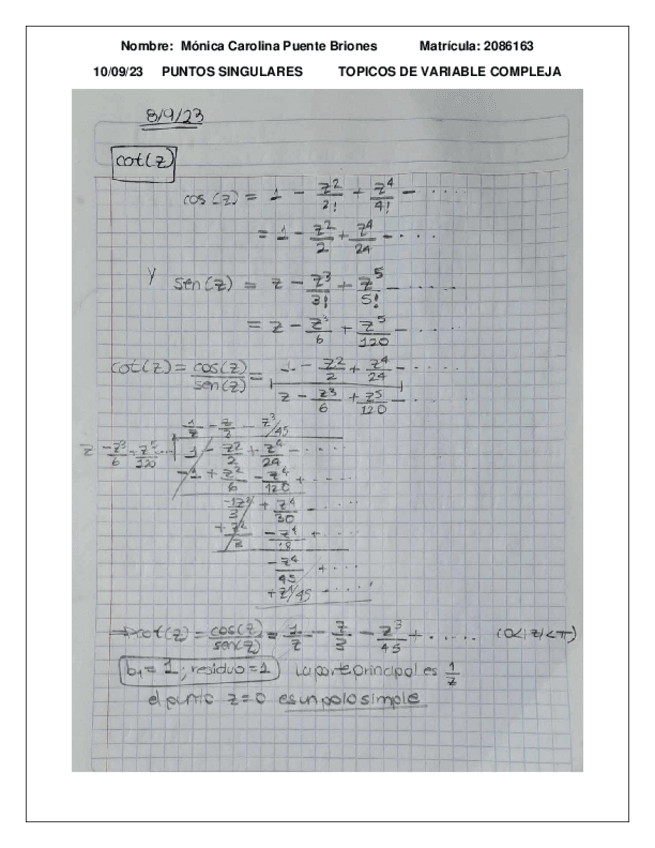 Nombre: Mónica Carolina Puente Briones Matrícula: 2086163
10/09/23 PUNTOS SINGULARES TOPICOS DE VARIABLE COMPLEJA
8/9/23
cot(z)
cos (z) = 1 - z²/2! + z⁴/4! - ....
= 1 - z²/2 + z⁴/24 - ....
y sen(z) = z - z³/3! + z⁵/5! - ....
= z - z³/6 + z⁵/120 - ....
cot(z) = cos(z)/sen(z) = 1 - z²/2 + z⁴/24 - .... / z - z³/6 + z⁵/120 - ....
1/z - z/3 - z³/45
z - z³/6 + z⁵/120 ... 1 - z²/2 + z⁴/24 - ....
-1 + z²/6 - z⁴/120 + ....
-1z²/3 + z⁴/30 - ....
+z²/3 - z⁴/18 + ....
-z⁴/45 + ...
+z⁴/45 - ....
→ cot(z) = cos(z)/sen(z) = 1/z - z/3 - z³/45 + ..... (0<|z|<π)
b₁ = 1 ; residuo = 1 La parte principal es 1/z
el punto z=0 es un polo simple